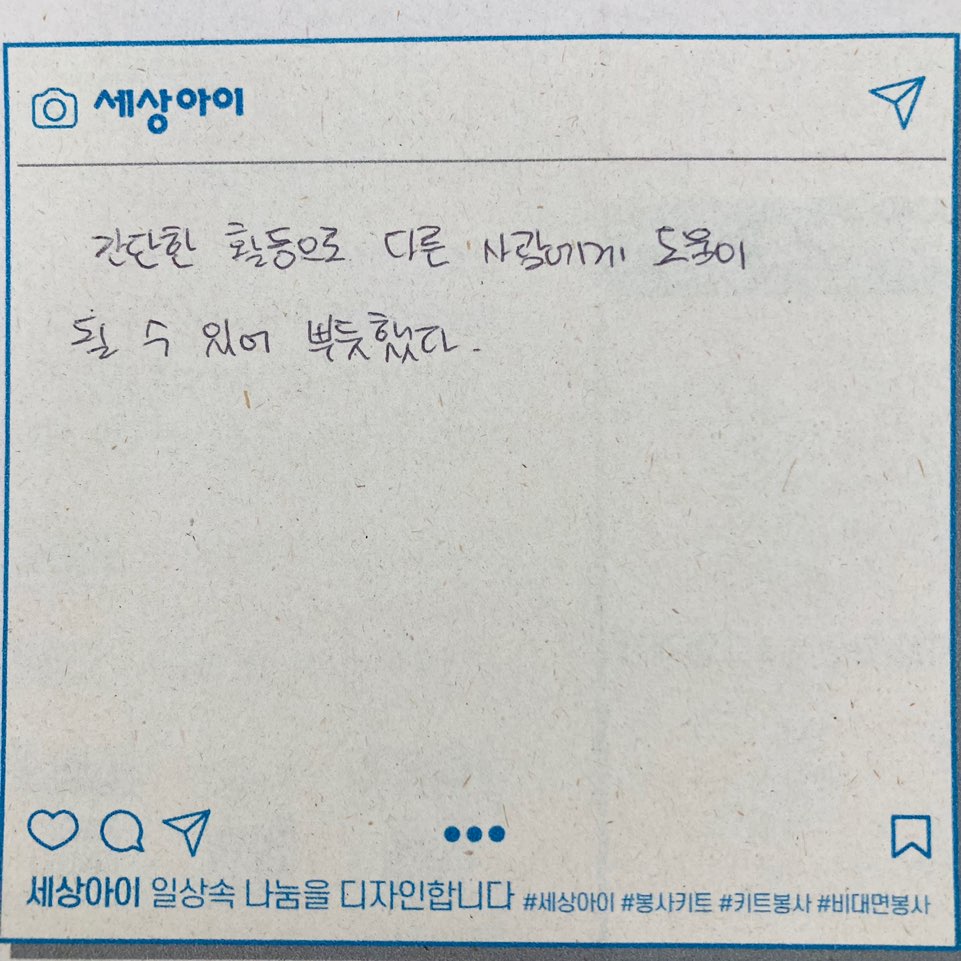 세상아이
간단한 활동으로 다른 사람에게 도움이
될 수 있어 뿌듯했다.
세상아이 일상속 나눔을 디자인합니다 #세상아이 #봉사키트 #키트봉사 #비대면봉사